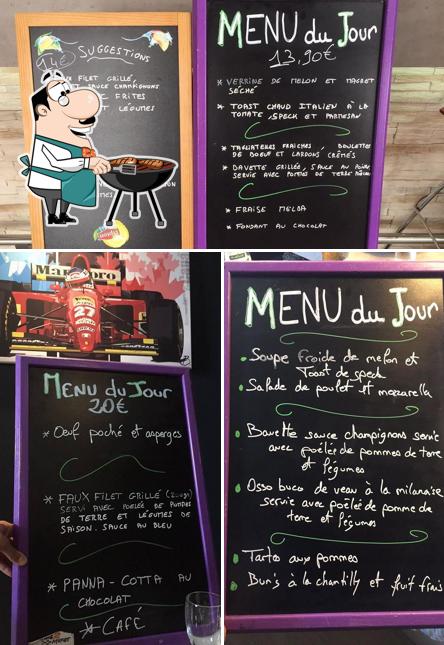 14€ SUGGESTIONS
UX FILET GRILLÉ,
ET SAUCE CHAMPIGNONS
EC FRITES
T LÉGUMES
MENU du Jour
13,90€
* VERRINE DE MELON ET MAGRET
SÉCHÉ
* TOAST CHAUD ITALIEN À LA
TOMATE, SPECK ET PARMESAN
* TAGLIATELLES FRAICHES, BOULETTES
DE BOEUF ET LARDONS CRÉMÉS
* BAVETTE GRILLÉE, SAUCE AU POIVRE
SERVIE AVEC POMMES DE TERRE
* FRAISE MELBA
* FONDANT AU CHOCOLAT
Marlboro
27
MENU du Jour
20€
* Oeuf poché et asperges
* FAUX FILET GRILLÉ (200g)
SERVI AVEC POÊLÉE DE POMMES
DE TERRE ET LÉGUMES DE
SAISON. SAUCE AU BLEU
* PANNA-COTTA AU
CHOCOLAT
* CAFÉ
MENU du Jour
Soupe froide de melon et
Toast de speck
Salade de poulet et mozzarella
Bavette sauce champignons servie
avec poêlée de pommes de terre
et légumes
Osso buco de veau à la milanaise
servie avec poêlée de pomme de
terre et légumes
Tartes aux pommes
à la chantilly et fruit frais